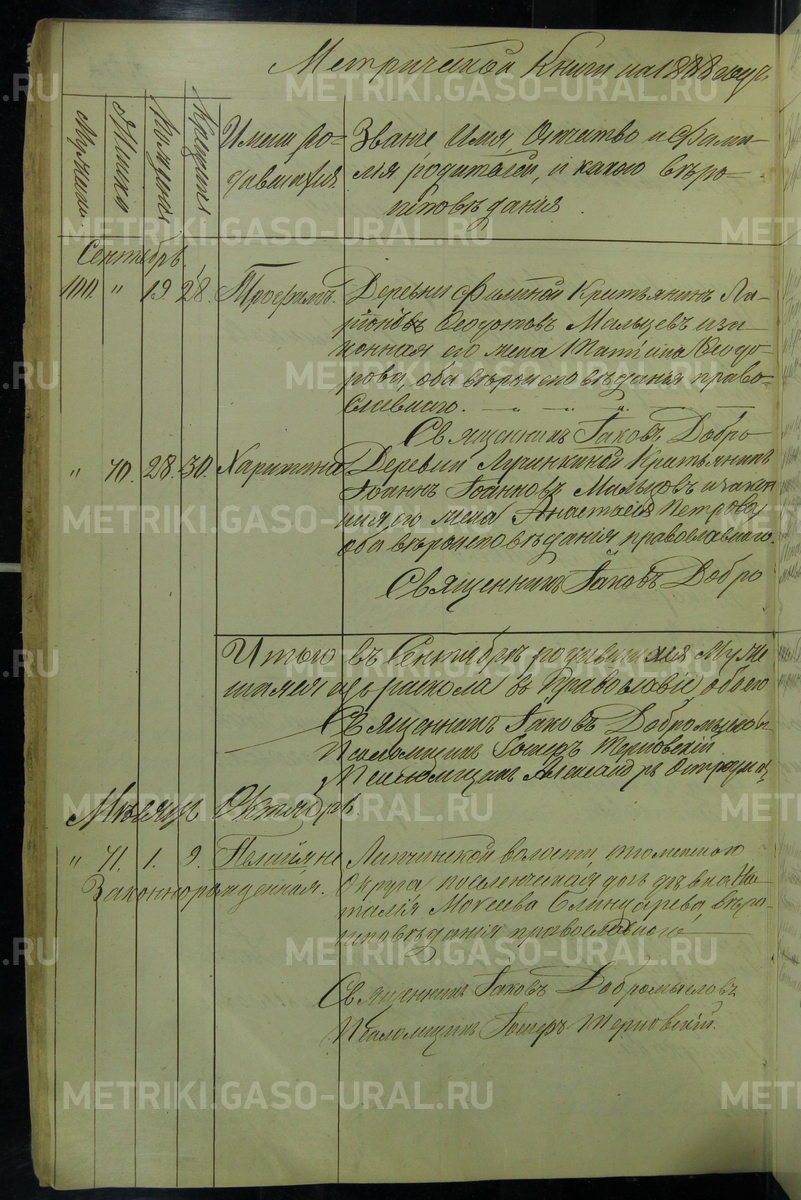 Метрической Книги на 1888 годъ
Мужеска
Женска
Рожденія
Крещенія
Имена ро-
дившихся
Званіе Имя, Отчество и Фами-
лія родителей, и какого вѣро-
исповѣданія
Сентябрь
100. " 19 28. Трофимъ. Деревни Крестьянинъ Ла-
ріоновъ Ѳеодотовъ Мальцевъ и за-
конная его жена Татіана Ѳеодо-
рова, оба вѣроисповѣданія право-
славнаго.
Священникъ Іаковъ Добро
" 70. 28. 30. Харитина Деревни Лучинкиной Крестьянинъ
Іоаннъ Іоанновъ Мальцовъ и закон
ная его жена Анастасія Петрова
оба вѣроисповѣданія православнаго.
Священникъ Іаковъ Добро
Итого въ Сентябрѣ родившихся Муже
раскола въ Православіе обоего
Священникъ Іаковъ Добромысловъ
Псаломщикъ Іосифъ Терновскій
Псаломщикъ Александръ
Мѣсяцъ Октябрь.
" 71. 1. 9. Пелагія не Липчинской волости
Законнорожденная. Округа поселенческая дочь дѣвка На-
талія Мокеева вѣро-
исповѣданія православнаго
Священникъ Іаковъ Добромысловъ
Псаломщикъ Іосифъ Терновскій.
METRIKI.GASO-URAL.RU